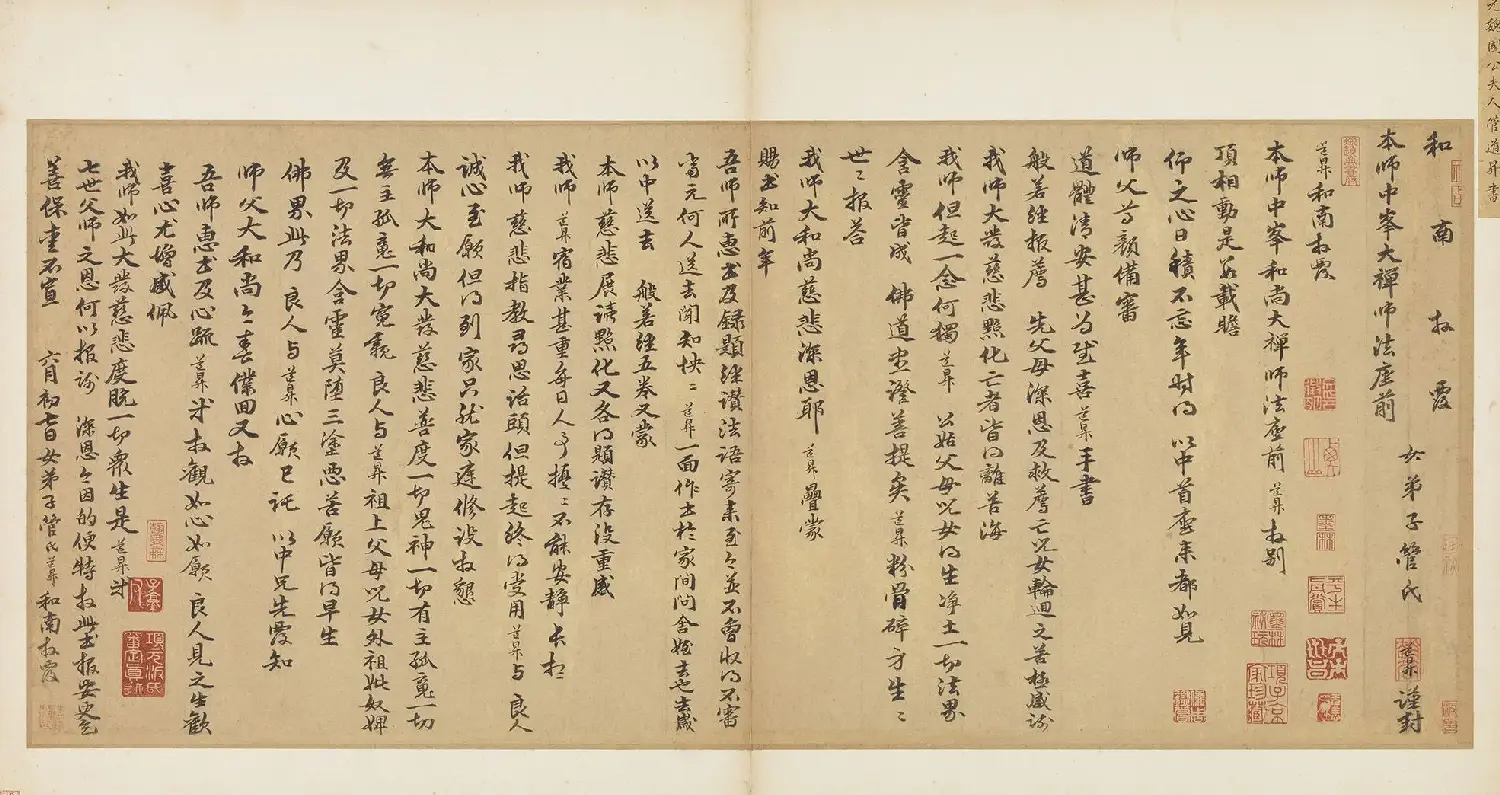 元魏國公夫人管道昇書
和南 拜覆
本師中峯大禪師法座前
女弟子管氏道昇謹封
道杲和南拜覆
本師中峯和尚大禪師法座前 道昇拜別
頂相動是數載瞻
仰之心日積不忘年時得 以中首座來都如見
師父尊顏備審
道體清安甚為慰喜道杲手書
般若經報薦 先父母深恩及救薦亡兒女輪迴之苦極感謝
我師大發慈悲點化亡者皆得離苦海
我師但起一念何獨道昇 公姑父母兒女得生淨土一切法界
含靈皆成 佛道盡證菩提矣道杲粉骨碎身生〻
世〻報荅
我師大和尚慈悲深恩耶 道昇疊蒙
賜書知前年
吾師所惠書及錄題經讚法語寄來至今並不會收得不審
當元何人送去聞知怏〻道昇一面作書於家間問舍姪去也去歲
以中送去 般若經五券又蒙
本師慈悲展讀點化又各得題讚存没重感
我師道昇宿業甚重每日人事擾〻不能安靜長想
我師慈悲指教尋思話頭但提起終得受用道杲与 良人
誠心至願但得到家只就家庭修設拜懇
本師大和尚大發慈悲普度一切鬼神一切有主孤䰟一切
無主孤䰟一切冤親 良人与道昇祖上父母兒女外祖妣奴婢
及一切法界含靈莫墮三塗惡苦願皆得早生
佛界此乃 良人与道昇心願已託 以中兄先覆知
師父大和尚今春僕回又拜
吾師惠書及心疏道昇 拜觀如心如願 良人見之生歡
喜心尤增感佩
我師如此大發慈悲度脫一切衆生是道昇
七世父師之恩何以報謝 深恩今因的便特拜此書報安
善保重不宣 六月初七日女弟子管氏道昇和南拜覆